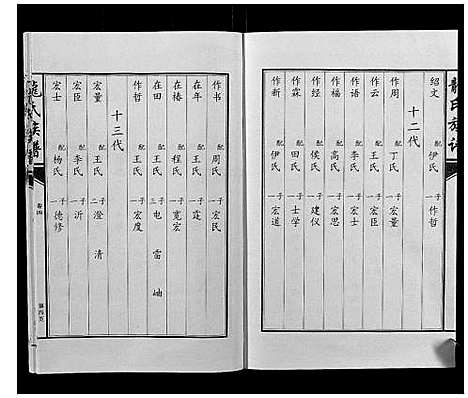 龍氏族谱
绍文 配伊氏 一子作哲
十二代
作周 配丁氏 一子宏量
作云 配王氏 一子宏臣
作语 配李氏 一子宏士
作福 配高氏 一子宏思
作经 配侯氏 一子建仪
作霖 配田氏 一子士学
作新 配伊氏 一子宏道
作书 配周氏 一子宏民
在年 配王氏 一子霆
在椿 配程氏 一子宽宏
在田 配王氏 三子电 雷 岫
作哲 配王氏 一子宏度
十三代
宏量 配王氏 二子澄 清
宏臣 配李氏 一子沂
宏士 配杨氏 一子德修
龍氏族譜
卷四
第四页